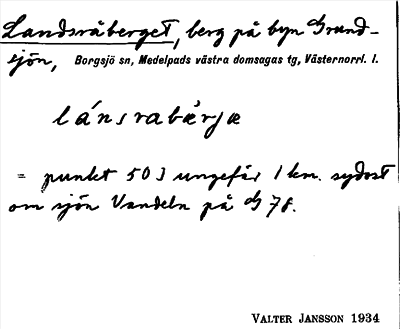 Landsråberget, berg på byn Grund-
sjön, Borgsjö sn, Medelpads västra domsagas tg, Västernorrl. l.
lánsrabärjæ
= punkt 503 ungefär 1 km. sydost
om sjön Vandeln på G 78.
VALTER JANSSON 1934